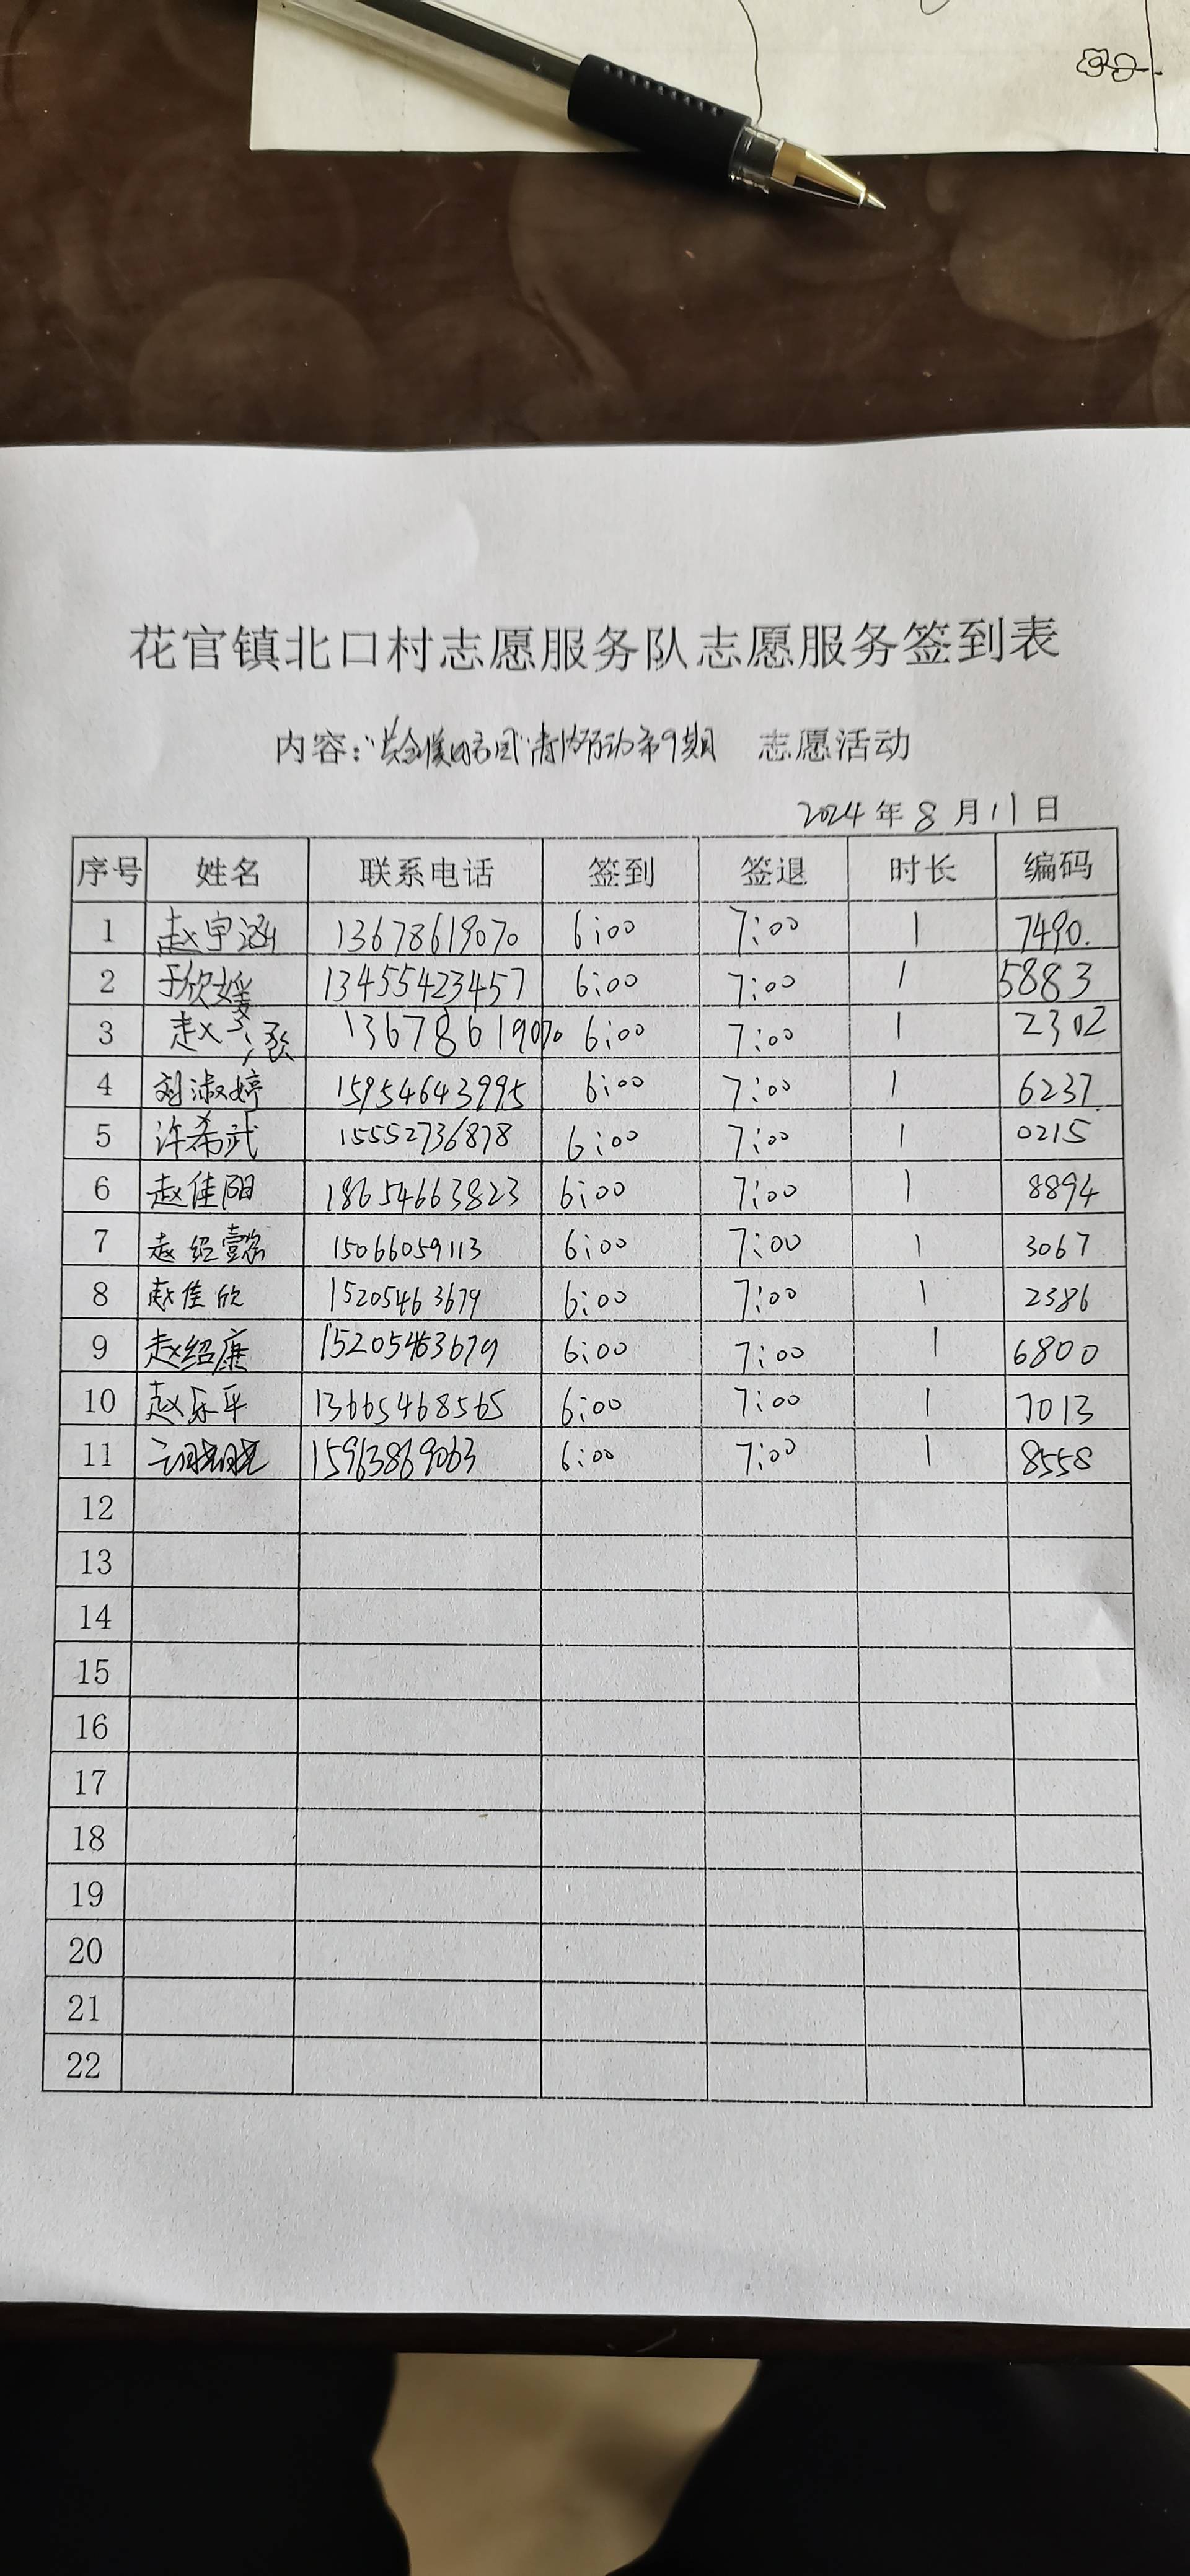 花官镇北口村志愿服务队志愿服务签到表
内容: 第9期 志愿活动
2024年8月11日
序号 姓名 联系电话 签到 签退 时长 编码
1 赵宇涵 13678619070 6:00 7:00 1 7490.
2 于欣媛 13455423457 6:00 7:00 1 5883
3 赵 13678619070 6:00 7:00 1 2302
4 刘淑婷 15954643995 6:00 7:00 1 6237
5 许希武 15552736878 6:00 7:00 1 0215
6 赵佳阳 18654663823 6:00 7:00 1 8894
7 赵绍懿 15066059113 6:00 7:00 1 3067
8 赵佳欣 15205463679 6:00 7:00 1 2386
9 赵绍康 15205463679 6:00 7:00 1 6800
10 赵乐平 13665468565 6:00 7:00 1 7013
11 15963869063 6:00 7:00 1 8558
12
13
14
15
16
17
18
19
20
21
22